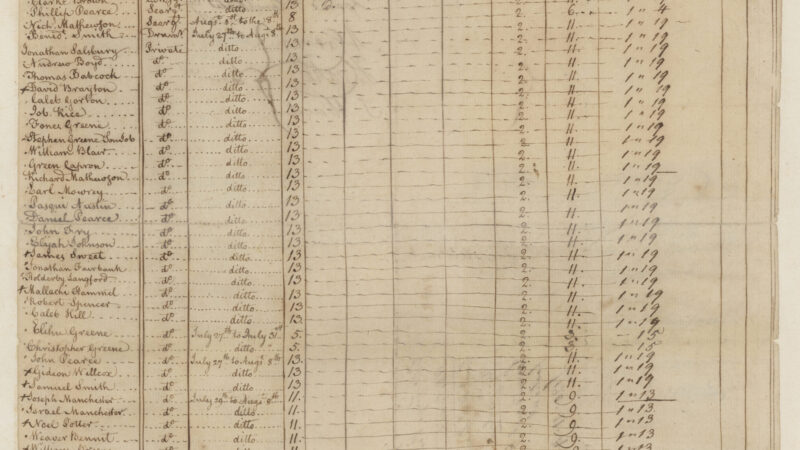 Clarke Brown ditto 13
Phillip Pearce Searg.t ditto 13 2. 6 1 " 4
Nich. Mathewson Searg.t Aug.t 1st to the 8th 8
Bened.t Smith Drum.r July 27th to Aug.t 8th 13 2. 11. 1 " 19
Jonathan Salsbury Private ditto 13 2. 11. 1 " 19
Andrew Boyd d.o ditto 13 2. 11. 1 " 19
Thomas Babcock d.o ditto 13 2. 11. 1 " 19
David Brayton d.o ditto 13 2. 11. 1 " 19
Calet Gorton d.o ditto 13 2. 11. 1 " 19
Job Rice d.o ditto 13 2. 11. 1 " 19
Fones Greene d.o ditto 13 2. 11. 1 " 19
Stephen Greene Son Job d.o ditto 13 2. 11. 1 " 19
William Blair d.o ditto 13 2. 11. 1 " 19
Green Capron d.o ditto 13 2. 11. 1 " 19
Richard Mathewson d.o ditto 13 2. 11. 1 " 19
Earl Mowrey d.o ditto 13 2. 11. 1 " 19
Pasqui Austin d.o ditto 13 2. 11. 1 " 19
Daniel Pearce d.o ditto 13 2. 11. 1 " 19
John Fry d.o ditto 13 2. 11. 1 " 19
Elijah Johnson d.o ditto 13 2. 11. 1 " 19
James Sweet d.o ditto 13 2. 11. 1 " 19
Jonathan Fairbank d.o ditto 13 2. 11. 1 " 19
Holderby Langford d.o ditto 13 2. 11. 1 " 19
Mallachi Hammil d.o ditto 13 2. 11. 1 " 19
Robert Spencer d.o ditto 13 2. 11. 1 " 19
Caleb Hill d.o ditto 13 2. 11. 1 " 19
Elihu Greene d.o July 27th to July 31st 5. 2. 3. 15
Christopher Greene d.o ditto 5. 2. 3. 15
John Pearce d.o July 27th to Aug.t 8th 13 2. 11. 1 " 19
Gideon Willcox d.o ditto 13 2. 11. 1 " 19
Samuel Smith d.o ditto 13 2. 11. 1 " 19
Joseph Manchester d.o July 29th to Aug.t 8th 11. 2. 9. 1 " 13
Israel Manchester d.o ditto 11. 2. 9. 1 " 13
Noel Potter d.o ditto 11. 2. 9. 1 " 13
Weaver Bennit d.o ditto 11. 2. 9. 1 " 13
William